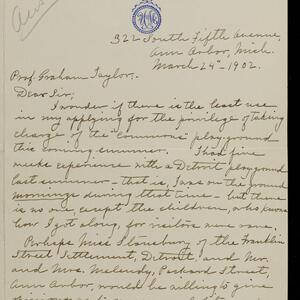 322 South Fifth Avenue,
Ann Arbor, Mich.
March 24th - 1902.
Prof. Graham Taylor,.
Dear Sir;
I wonder if there is the least use
in my applying for the privilege of taking
charge of the "Commons" playground
this coming summer. I had five
weeks experience with a Detroit playground
last summer - that is, I was on the ground
mornings during that time - but there
is no one, except the children, who knows
how I got along, for visitors were rare.
Perhaps Miss of the Franklin
Street Settlement, Detroit, and Mr.
and Mrs. Melendy, Packard Street,
Ann Arbor, would be willing to give